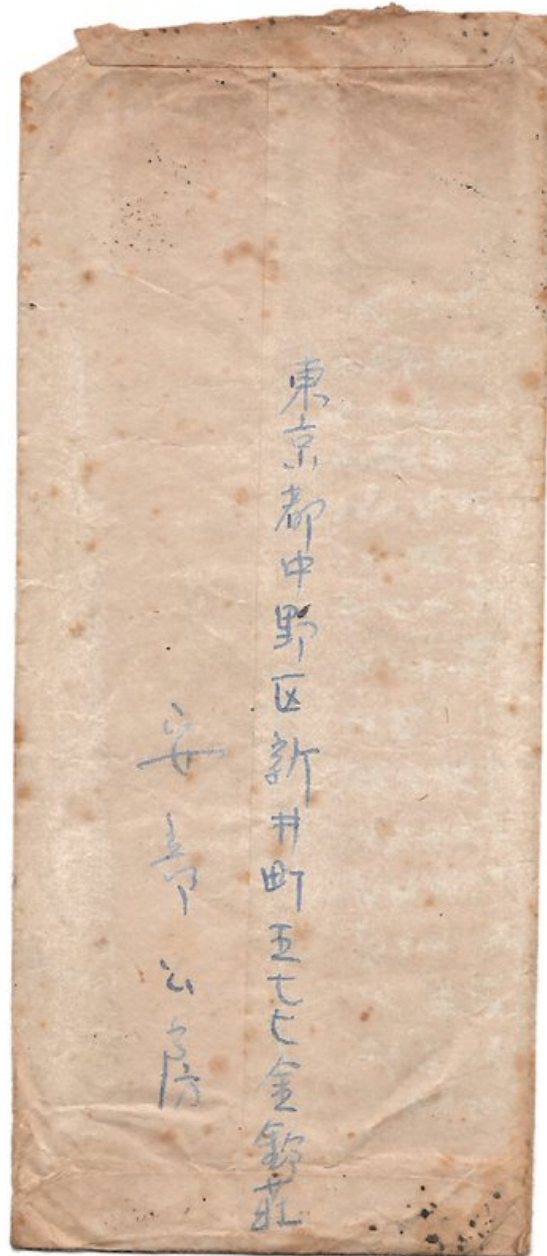 東京都中野区新井町五七七金鈴荘
安部公房